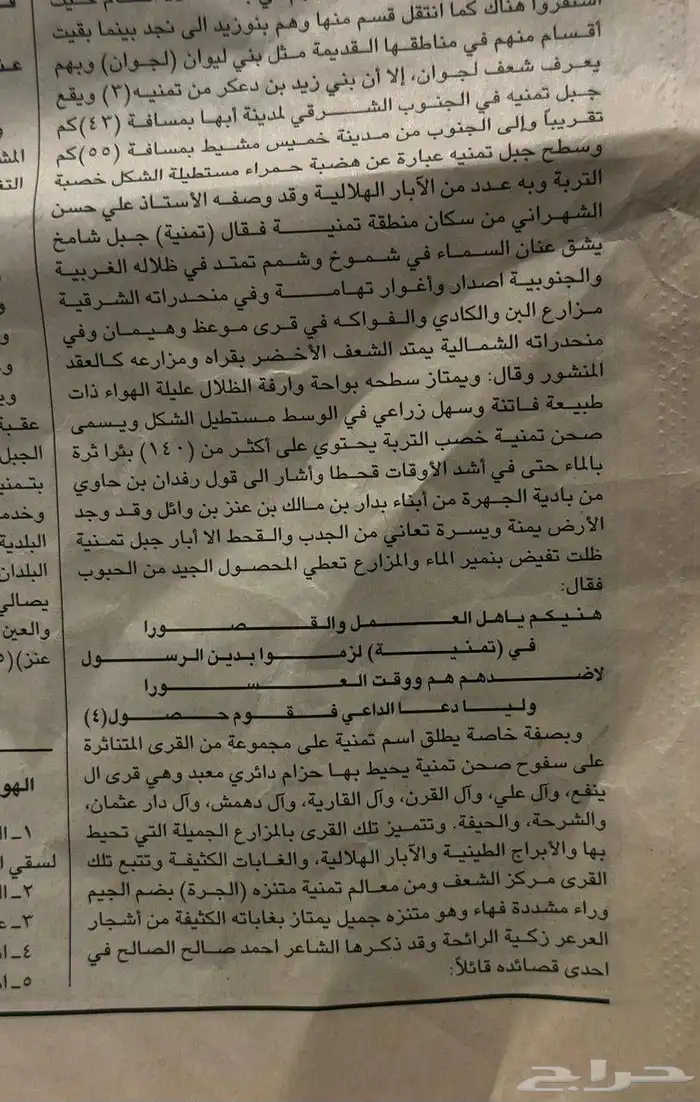 استقروا هناك كما انتقل قسم منها وهم بنوزيد الى نجد بينما بقيت
أقسام منهم في مناطقها القديمة مثل بني ليوان (لجوان) وبهم
يعرف شعف لجوان، إلا أن بني زيد بن دعكر من تمنيه(٣) ويقع
جبل تمنيه في الجنوب الشرقي لمدينة أبها بمسافة (٤٣)كم
تقريباً وإلى الجنوب من مدينة خميس مشيط بمسافة (٥٥)كم
وسطح جبل تمنيه عبارة عن هضبة حمراء مستطيلة الشكل خصبة
التربة وبه عدد من الآبار الهلالية وقد وصفه الأستاذ علي حسن
الشهراني من سكان منطقة تمنية فقال (تمنية) جبل شامخ
يشق عنان السماء في شموخ وشمم تمتد في ظلاله الغربية
والجنوبية اصدار وأغوار تهامة وفي منحدراته الشرقية
مزارع البن والكادي والفواكه في قرى موعظ وهيمان وفي
منحدراته الشمالية يمتد الشعف الأخضر بقراه ومزارعه كالعقد
المنشور وقال: ويمتاز سطحه بواحة وارفة الظلال عليلة الهواء ذات
طبيعة فاتنة وسهل زراعي في الوسط مستطيل الشكل ويسمى
صحن تمنية خصب التربة يحتوي على أكثر من (١٤٠) بئرا ثرة
بالماء حتى في أشد الأوقات قحطا وأشار الى قول رفدان بن حاوي
من بادية الجهرة من أبناء بدار بن مالك بن عنز بن وائل وقد وجد
الأرض يمنة ويسرة تعاني من الجدب والقحط الا أبار جبل تمنية
ظلت تفيض بنمير الماء والمزارع تعطي المحصول الجيد من الحبوب
فقال:
هنيكم ياهل العمل والقصورا
في (تمنية) لزموا بدين الرسول
لاضدهم هم ووقت العسورا
وليا دعا الداعي فقوم حصول(٤)
وبصفة خاصة يطلق اسم تمنية على مجموعة من القرى المتناثرة
على سفوح صحن تمنية يحيط بها حزام دائري معبد وهي قرى ال
ينفع، وآل علي، وآل القرن، وآل القارية، وآل دهمش، وآل دار عثمان،
والشرحة، والحيفة. وتتميز تلك القرى بالمزارع الجميلة التي تحيط
بها والأبراج الطينية والآبار الهلالية، والغابات الكثيفة وتتبع تلك
القرى مركز الشعف ومن معالم تمنية متنزه (الجرة) بضم الجيم
وراء مشددة فهاء وهو متنزه جميل يمتاز بغاباته الكثيفة من أشجار
العرعر زكية الرائحة وقد ذكرها الشاعر احمد صالح الصالح في
احدى قصائده قائلاً:
عقبة
الجبل
وخدم
البلدية
البلدان
يصالي
والعين
عنز)
الهو
١-
لسقي
٢-
٣-
٤-
٥-
حراج